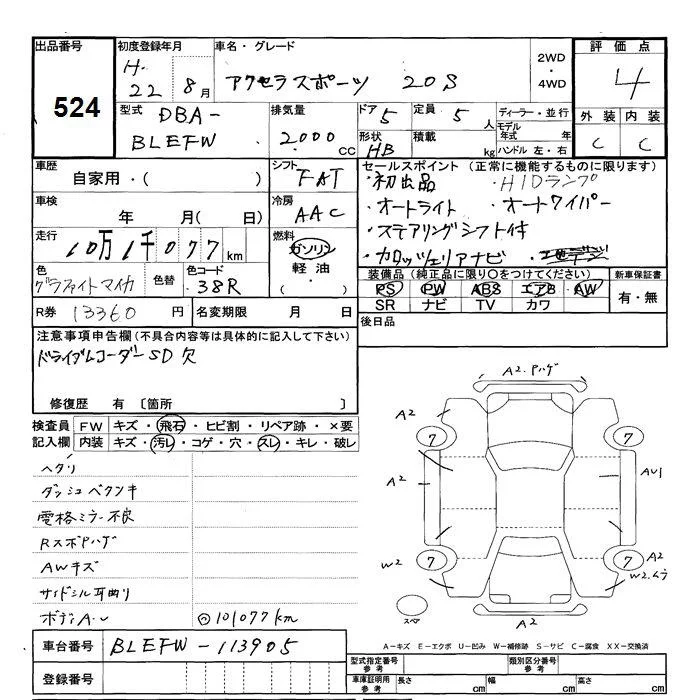 出品番号 初度登録年月 車名・グレード 2WD・4WD 評価点
524
H. 22年 8月 アクセラスポーツ 20S 4
型式 DBA- BLEFW 排気量 2000 cc ドア 5 定員 5 人 ディーラー・並行 外装 内装
形状 HB 積載 kg モデル年式 年 ハンドル 左・右 C C
車歴 自家用・( ) シフト FAT セールスポイント (正常に機能するものに限ります)
・初出品 ・HIDランプ
車検 年 月( 日) 冷房 AAC ・オートライト ・オートワイパー
・ステアリングシフト付
走行 10万1千077km 燃料 ガソリン 軽油 ( ・ ) ・カロッツェリアナビ
色 グラファイトマイカ 色替 色コード 38R 装備品(純正品に限り○をつけてください) 新車保証書
PS PW ABS エアB AW 有・無
SR ナビ TV カワ
R券 13360 円 名変期限 月 日 後日品
注意事項申告欄(不具合内容等は具体的に記入して下さい)
ドライブレコーダーSD欠
修復歴 有〔箇所 〕
検査員記入欄 FW キズ・飛石・ヒビ割・リペア跡・×要
内装 キズ・汚レ・コゲ・穴・スレ・キレ・破レ
ヘタリ
ダッシュベタツキ
電格ミラー不良
RスポPハゲ
AWキズ
サイドシル耳曲り
ボデーA・U ◎101077km
A2.Pハゲ
A2
7 7
A2 AU1
W2 7 7 A2
W2.ムラ
スペア
A2
A-キズ E-エクボ U-凹み W-補修跡 S-サビ C-腐食 XX-交換済
車台番号 BLEFW-113905
登録番号
型式指定番号 参考 類別区分番号 参考
車庫証明用 参考 長さ cm 幅 cm 高さ cm